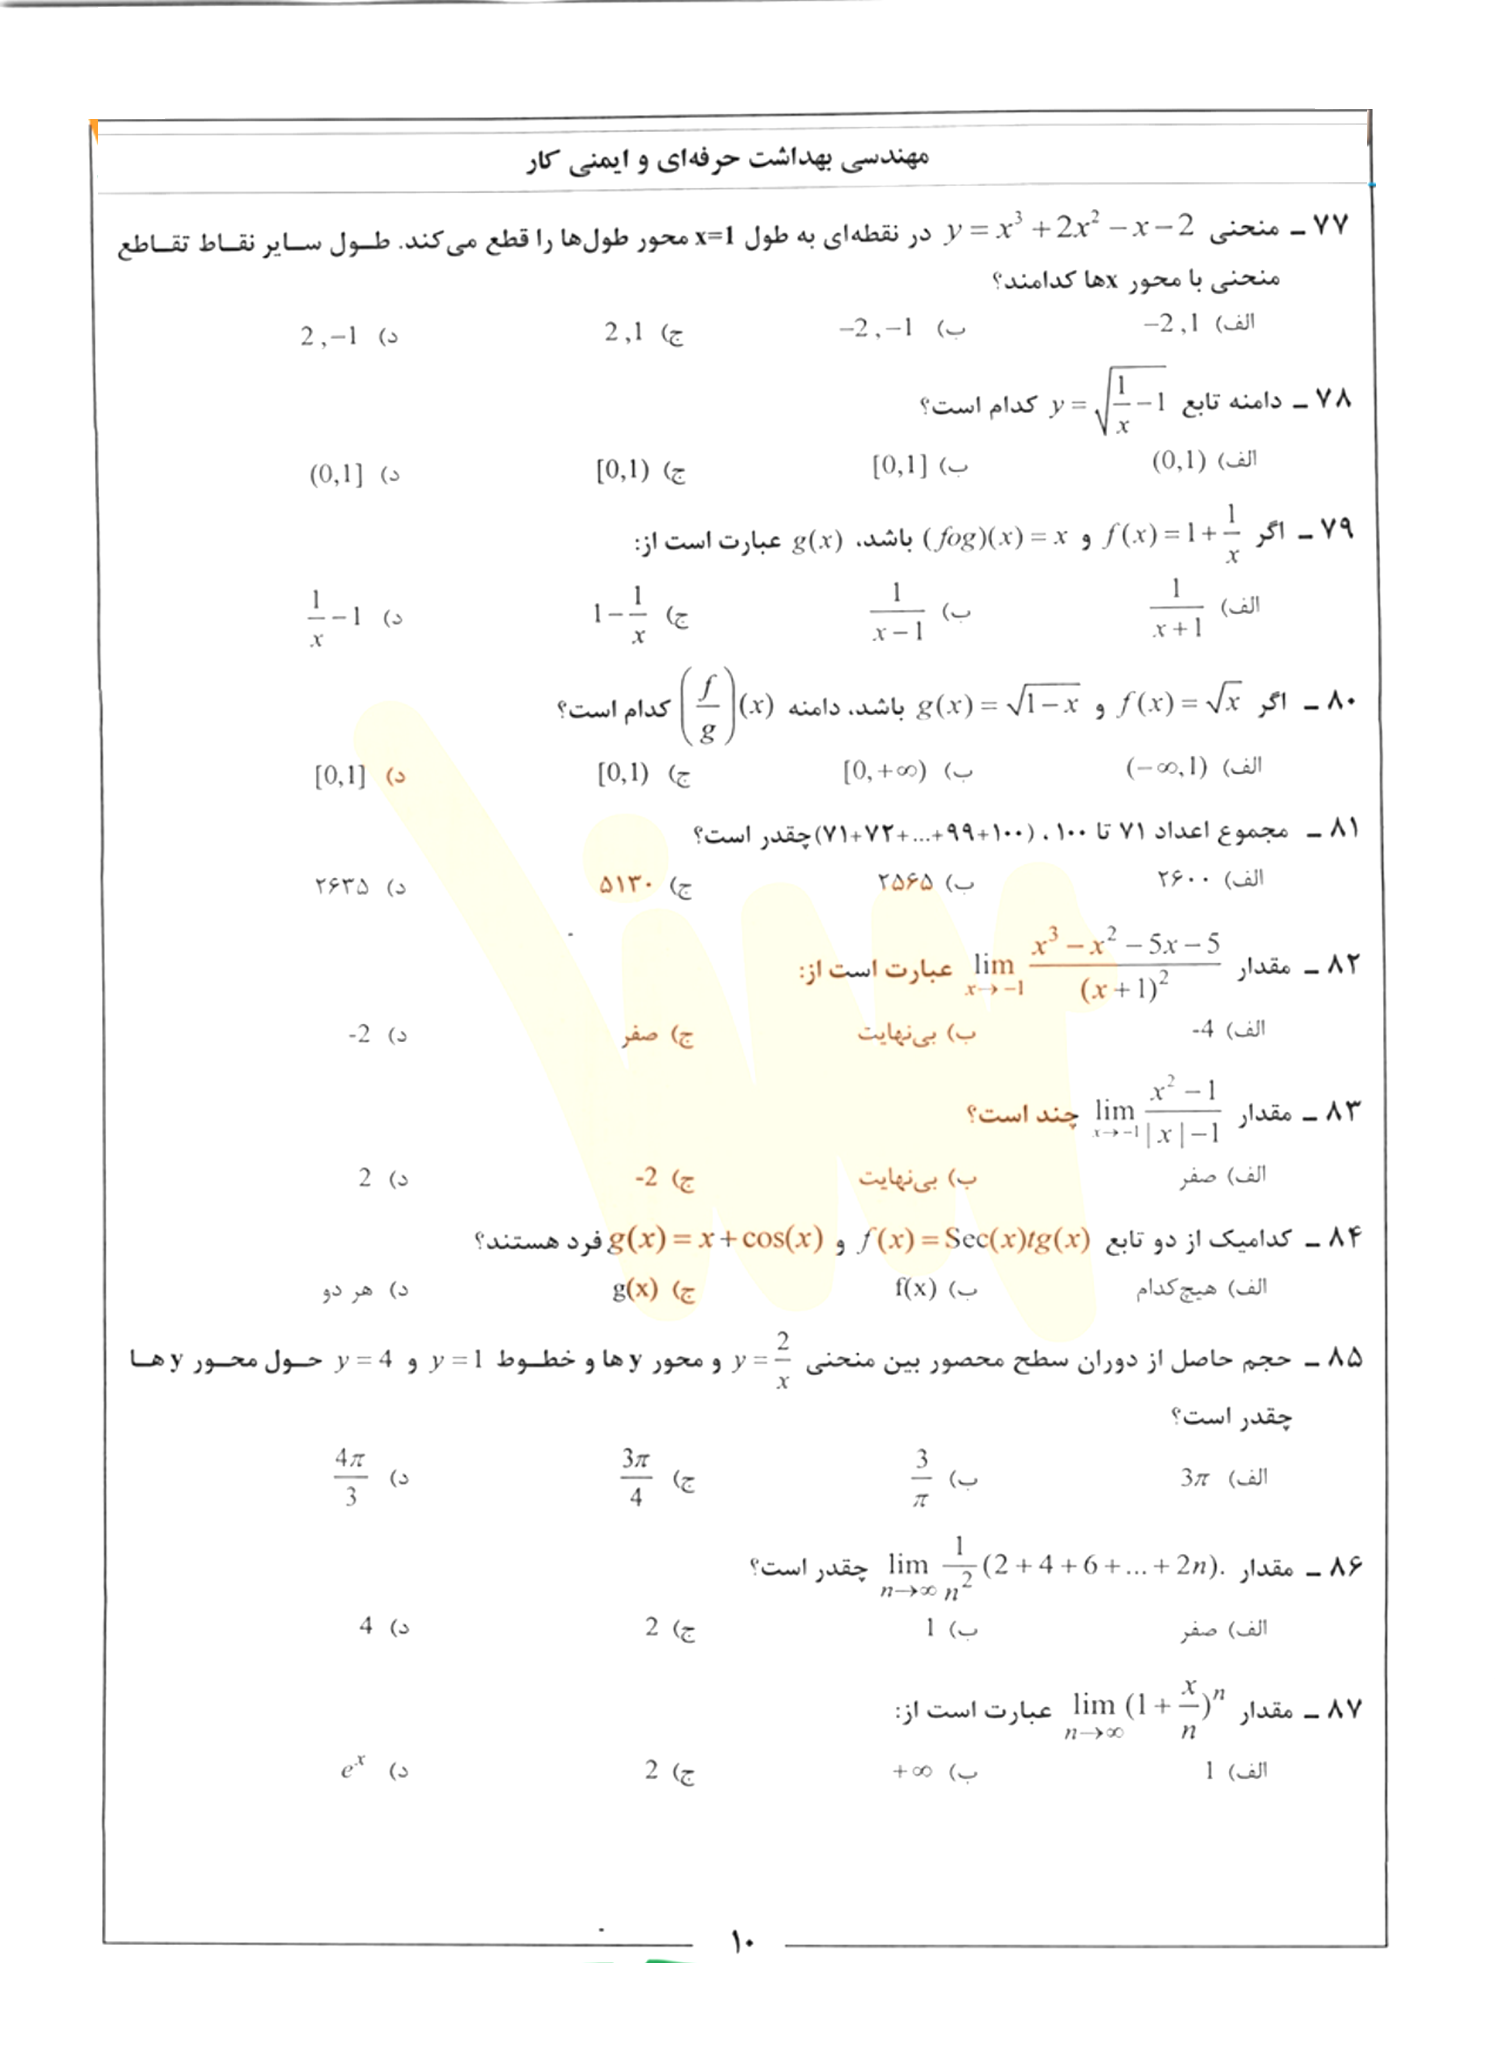 مهندسی بهداشت حرفه‌ای و ایمنی کار
۷۷ ـ منحنی y = x³ + 2x² − x − 2 در نقطه‌ای به طول x=1 محور طول‌ها را قطع می‌کند. طول سایر نقاط تقاطع
منحنی با محور xها کدامند؟
الف) −2 , 1 ب) −2 , −1 ج) 2 , 1 د) 2 , −1
۷۸ ـ دامنه تابع y = √(1/x − 1) کدام است؟
الف) (0,1) ب) [0,1] ج) [0,1) د) (0,1]
۷۹ ـ اگر f(x) = 1 + 1/x و (fog)(x) = x باشد، g(x) عبارت است از:
الف) 1/(x+1) ب) 1/(x−1) ج) 1 − 1/x د) 1/x − 1
۸۰ ـ اگر f(x) = √x و g(x) = √(1−x) باشد، دامنه (f/g)(x) کدام است؟
الف) (−∞,1) ب) [0,+∞) ج) [0,1) د) [0,1]
۸۱ ـ مجموع اعداد ۷۱ تا ۱۰۰ ، (۷۱+۷۲+...+۹۹+۱۰۰) چقدر است؟
الف) ۲۶۰۰ ب) ۲۵۶۵ ج) ۵۱۳۰ د) ۲۶۳۵
۸۲ ـ مقدار lim x→−1 (x³ − x² − 5x − 5)/(x+1)² عبارت است از:
الف) -4 ب) بی‌نهایت ج) صفر د) -2
۸۳ ـ مقدار lim x→−1 (x² − 1)/(|x| − 1) چند است؟
الف) صفر ب) بی‌نهایت ج) -2 د) 2
۸۴ ـ کدامیک از دو تابع f(x) = Sec(x)tg(x) و g(x) = x + cos(x) فرد هستند؟
الف) هیچ‌کدام ب) f(x) ج) g(x) د) هر دو
۸۵ ـ حجم حاصل از دوران سطح محصور بین منحنی y = 2/x و محور y ها و خطوط y = 1 و y = 4 حول محور y ها
چقدر است؟
الف) 3π ب) 3/π ج) 3π/4 د) 4π/3
۸۶ ـ مقدار lim n→∞ 1/n² (2 + 4 + 6 + ... + 2n). چقدر است؟
الف) صفر ب) 1 ج) 2 د) 4
۸۷ ـ مقدار lim n→∞ (1 + x/n)ⁿ عبارت است از:
الف) 1 ب) +∞ ج) 2 د) eˣ
۱۰